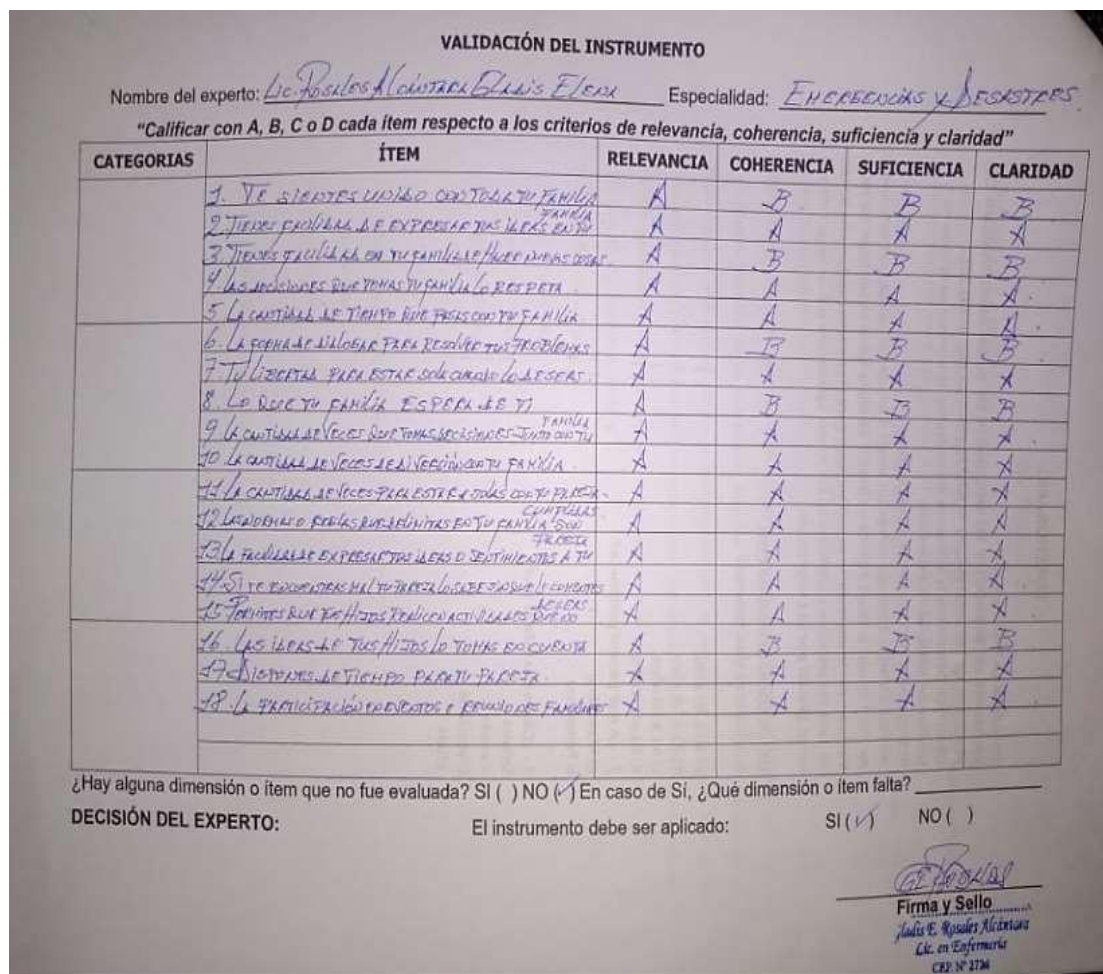 VALIDACIÓN DEL INSTRUMENTO
Nombre del experto: Lic. Rosales Alcántara Gladis Elena Especialidad: EMERGENCIAS Y DESASTRES
"Calificar con A, B, C o D cada ítem respecto a los criterios de relevancia, coherencia, suficiencia y claridad"
CATEGORIAS ÍTEM RELEVANCIA COHERENCIA SUFICIENCIA CLARIDAD
1. TE SIENTES UNIDO CON TODA TU FAMILIA A B B B
2 TIENES FACILIDAD DE EXPRESAR TUS IDEAS EN TU FAMILIA A A A A
3 TIENES FACILIDAD EN TU FAMILIA DE HACER NUEVAS COSAS A B B B
4 LAS DECISIONES QUE TOMAS TU FAMILIA LO RESPETA A A A A
5 LA CANTIDAD DE TIEMPO QUE PASAS CON TU FAMILIA A A A A
6. LA FORMA DE DIALOGAR PARA RESOLVER TUS PROBLEMAS A B B B
7 TU LIBERTAD PARA ESTAR SOLA CUANDO LO DESEAS A A A A
8. LO QUE TU FAMILIA ESPERA DE TI A B B B
9 LA CANTIDAD DE VECES QUE TOMAS DECISIONES JUNTO CON TU FAMILIA A A A A
10 LA CANTIDAD DE VECES DE DIVERSIÓN CON TU FAMILIA A A A A
11 LA CANTIDAD DE VECES PARA ESTAR A SOLAS CON TU PAREJA A A A A
12 LAS NORMAS O REGLAS QUE DELIMITAS EN TU FAMILIA SON CUMPLIDAS A A A A
13 LA FACILIDAD DE EXPRESAR TUS IDEAS O SENTIMIENTOS A TU PAREJA A A A A
14 SI TE ENCUENTRAS MAL TU PAREJA LO SABE SIN QUE LE COMENTES A A A A
15 PERMITES QUE TUS HIJOS REALICEN ACTIVIDADES A A A A
16 LAS IDEAS DE TUS HIJOS LO TOMAS EN CUENTA A B B B
17 DISPONES DE TIEMPO PARA TU PAREJA A A A A
18. LA PARTICIPACIÓN EN EVENTOS Y REUNIONES FAMILIARES A A A A
¿Hay alguna dimensión o ítem que no fue evaluada? SI ( ) NO (✓) En caso de Sí, ¿Qué dimensión o ítem falta?
DECISIÓN DEL EXPERTO: El instrumento debe ser aplicado: SI (✓) NO ( )
Firma y Sello
Gladis E. Rosales Alcántara
Lic. en Enfermería
CEP. N° 2724